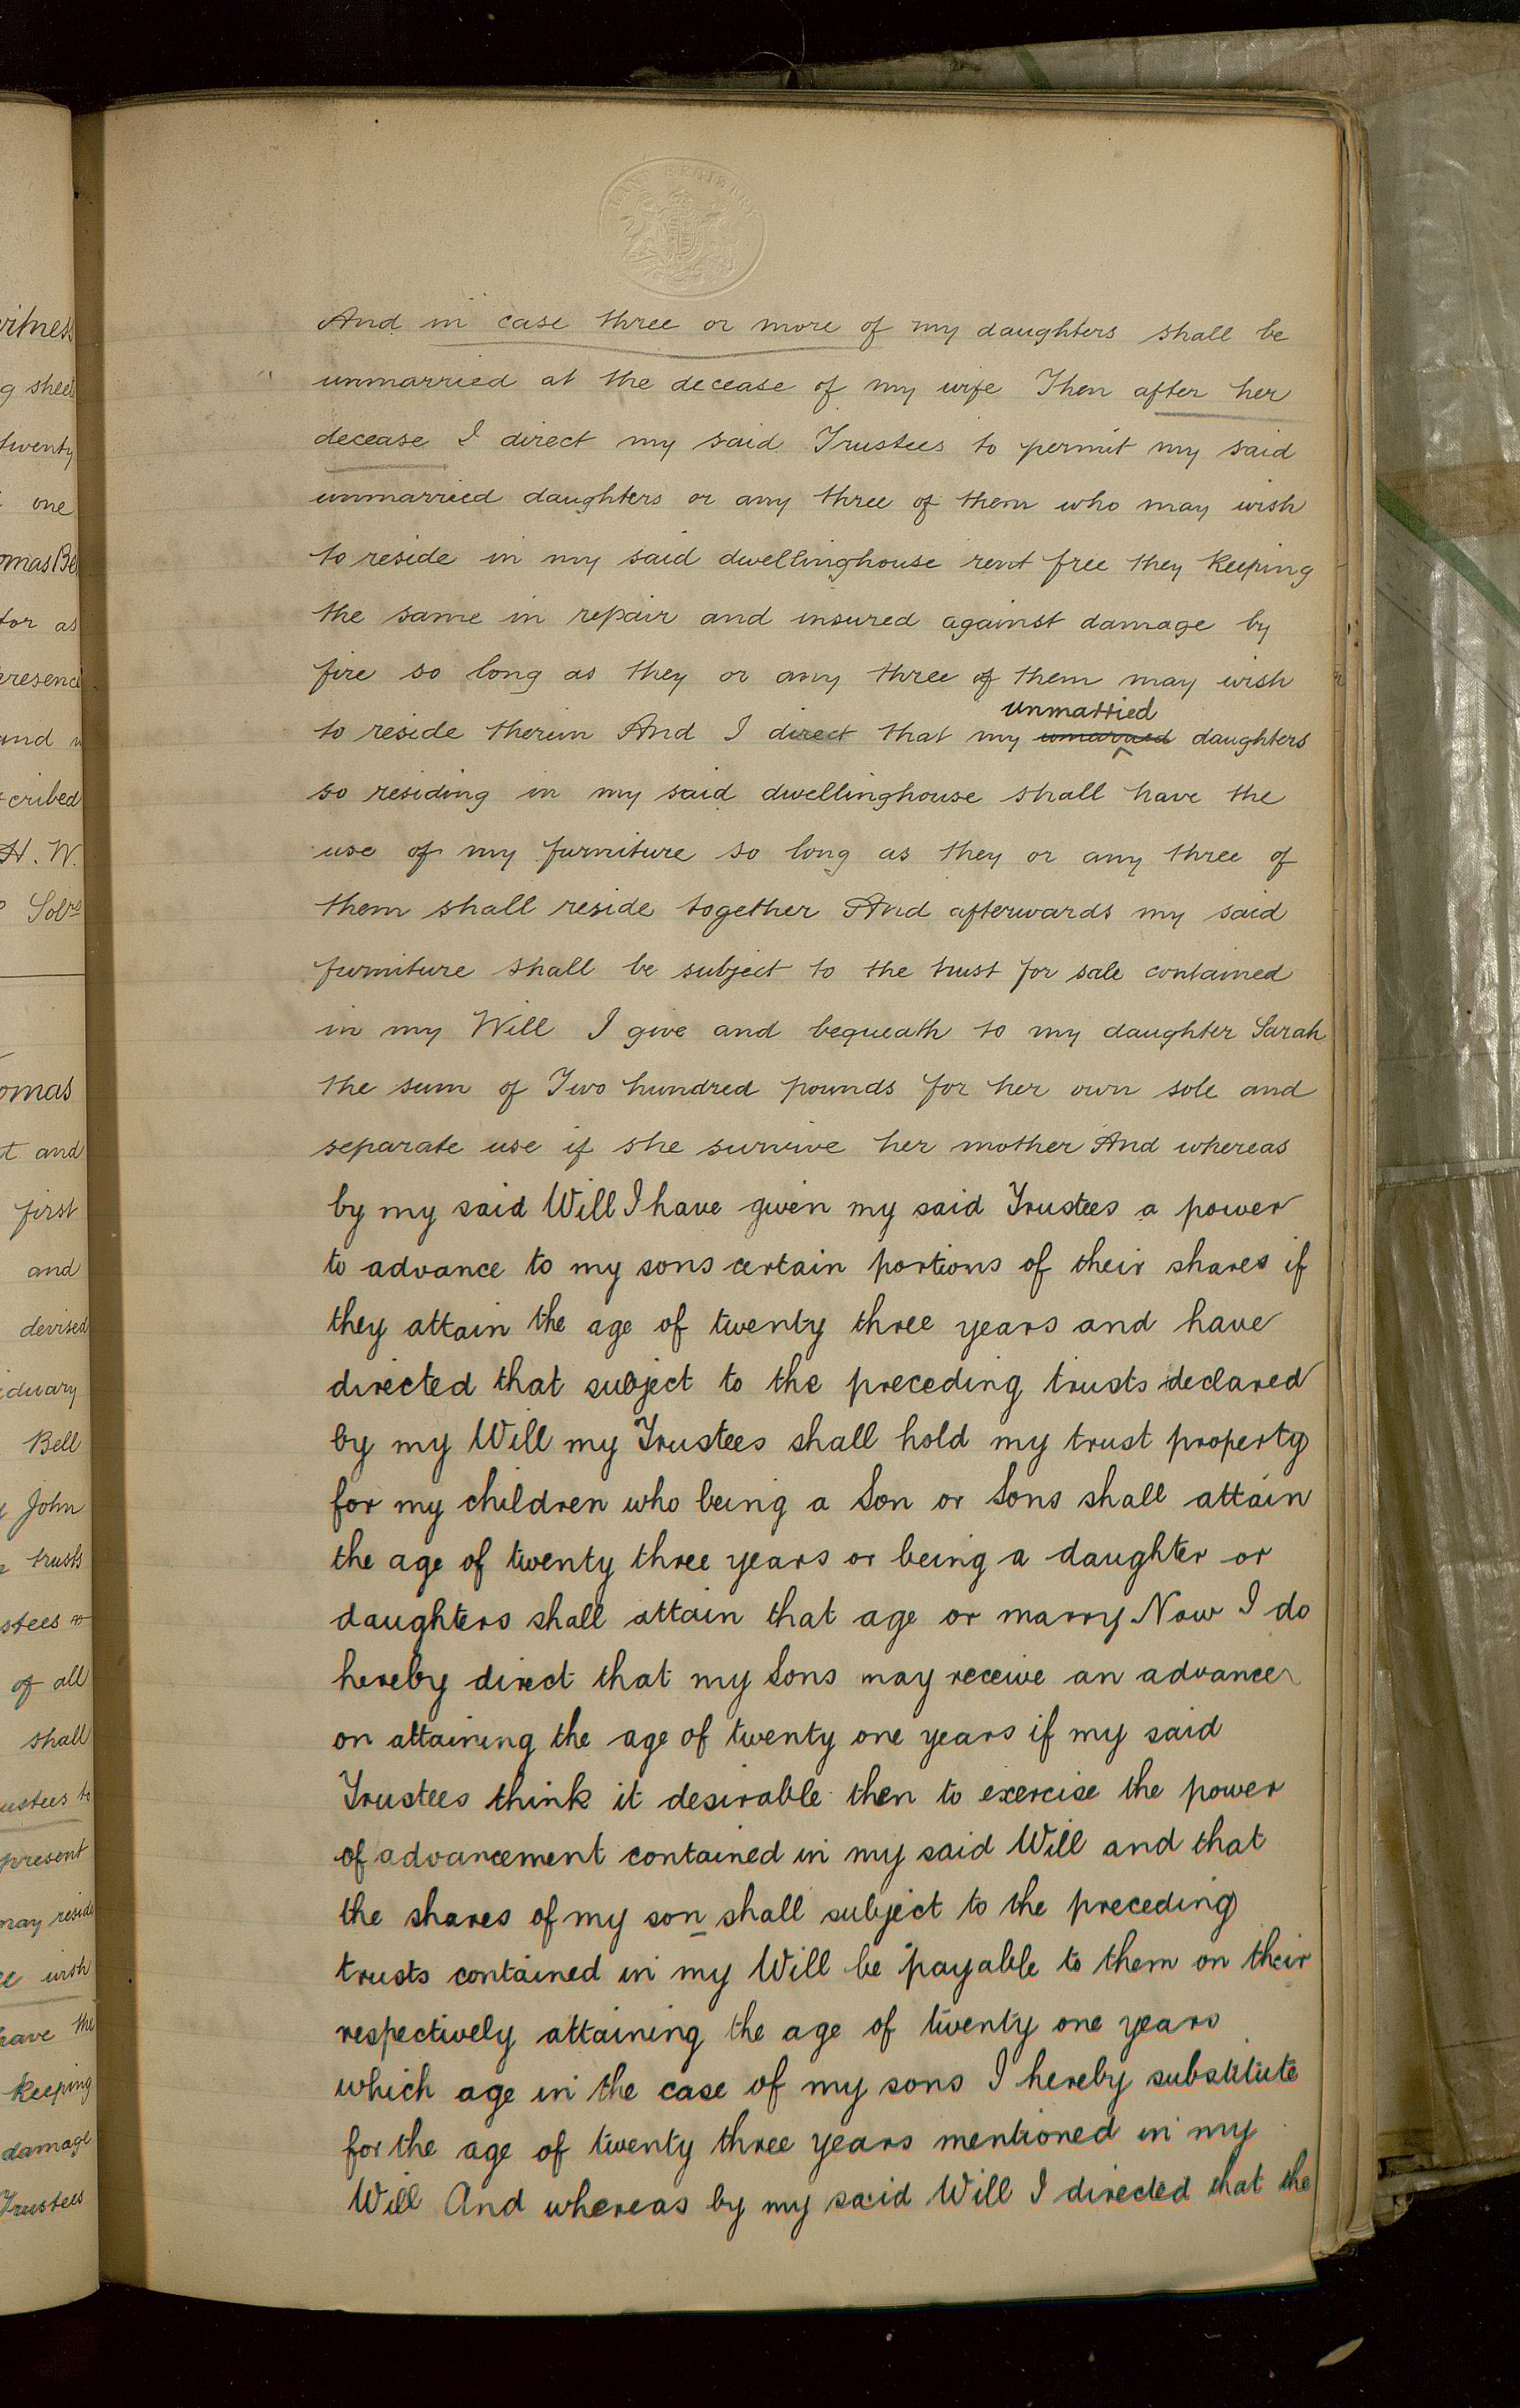 witness
g sheet
twenty
one
omas Be
tor as
presence
and
scribed
H. W.
Solrs
omas
t and
first
and
devised
iduary
Bell
John
trusts
stees
of all
shall
ustees to
present
may reside
wish
have the
keeping
damage
Trustees
And in case three or more of my daughters shall be
unmarried at the decease of my wife Then after her
decease I direct my said Trustees to permit my said
unmarried daughters or any three of them who may wish
to reside in my said dwellinghouse rent free they keeping
the same in repair and insured against damage by
fire so long as they or any three of them may wish
unmarried
to reside therein And I direct that my umarried daughters
so residing in my said dwellinghouse shall have the
use of my furniture so long as they or any three of
them shall reside together And afterwards my said
furniture shall be subject to the trust for sale contained
in my Will I give and bequeath to my daughter Sarah
the sum of Two hundred pounds for her own sole and
separate use if she survive her mother And whereas
by my said Will I have given my said Trustees a power
to advance to my sons certain portions of their shares if
they attain the age of twenty three years and have
directed that subject to the preceding trusts declared
by my Will my Trustees shall hold my trust property
for my children who being a Son or Sons shall attain
the age of twenty three years or being a daughter or
daughters shall attain that age or marry Now I do
hereby direct that my Sons may receive an advance
on attaining the age of twenty one years if my said
Trustees think it desirable then to exercise the power
of advancement contained in my said Will and that
the shares of my son shall subject to the preceding
trusts contained in my Will be payable to them on their
respectively attaining the age of twenty one years
which age in the case of my sons I hereby substitute
for the age of twenty three years mentioned in my
Will And whereas by my said Will I directed that the